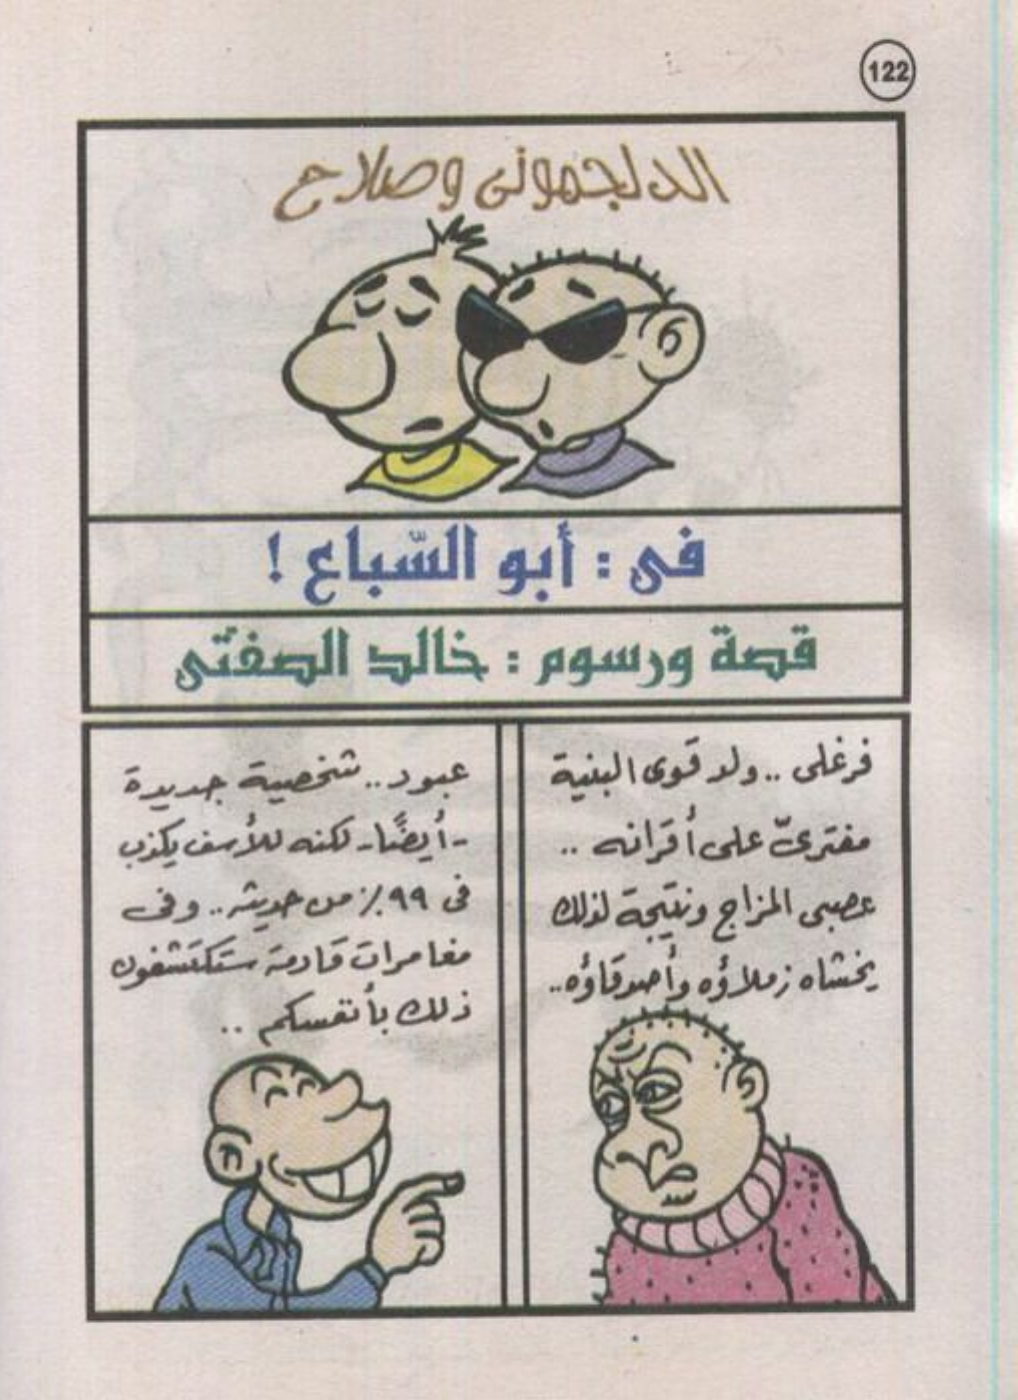 122
الدلجمونى وصلاح
فى : أبو السّباع !
قصة ورسوم : خالد الصفتى
فرغلى .. ولد قوى البنية
مفترىّ على أقرانه ..
عصبى المزاج ونتيجة لذلك
يخشاه زملاؤه وأصدقاؤه..
عبود.. شخصية جديدة
-أيضًا- لكنه للأسف يكذب
فى ٩٩٪ من حديثه.. وفى
مغامرات قادمة ستكتشفون
ذلك بأنفسكم ..